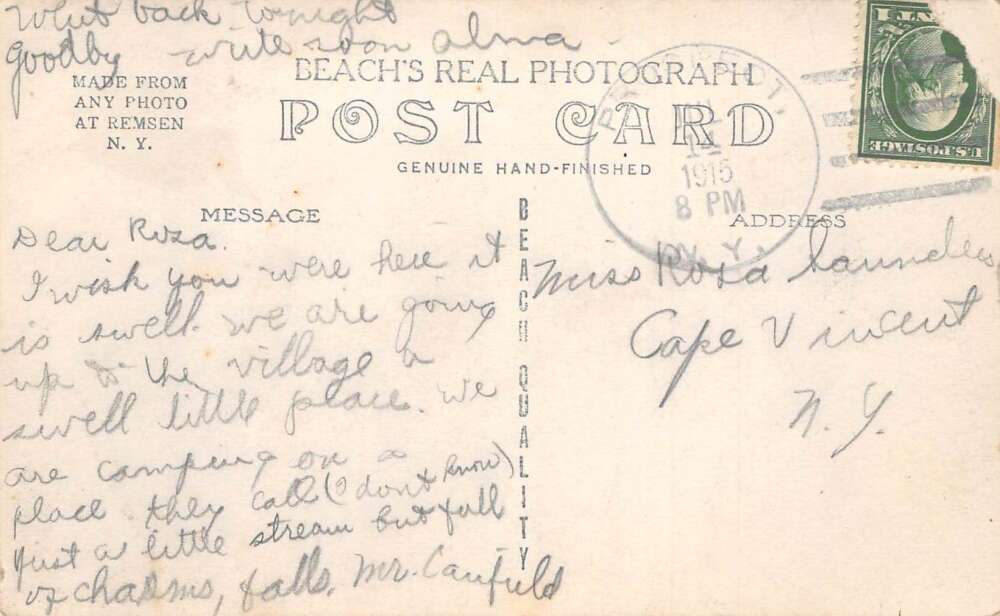 What back tonight
goodby write soon alma
MADE FROM
ANY PHOTO
AT REMSEN
N. Y.
BEACH'S REAL PHOTOGRAPH
POST CARD
GENUINE HAND-FINISHED
1915
8 PM
N. Y.
CENT
U.S. POSTAGE
MESSAGE
Dear Rosa.
I wish you were here it
is swell. we are going
up to the village a
swell little place. we
are camping on a
place they call (I dont know)
just a little stream but full
of charms, falls. Mr. Caufield
BEACH QUALITY
ADDRESS
Miss Rosa Saunders
Cape Vincent
N. Y.